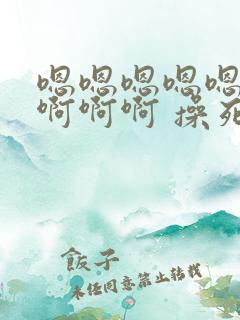 嗯嗯嗯嗯嗯
啊啊啊 操死
飯子
未经同意禁止转载